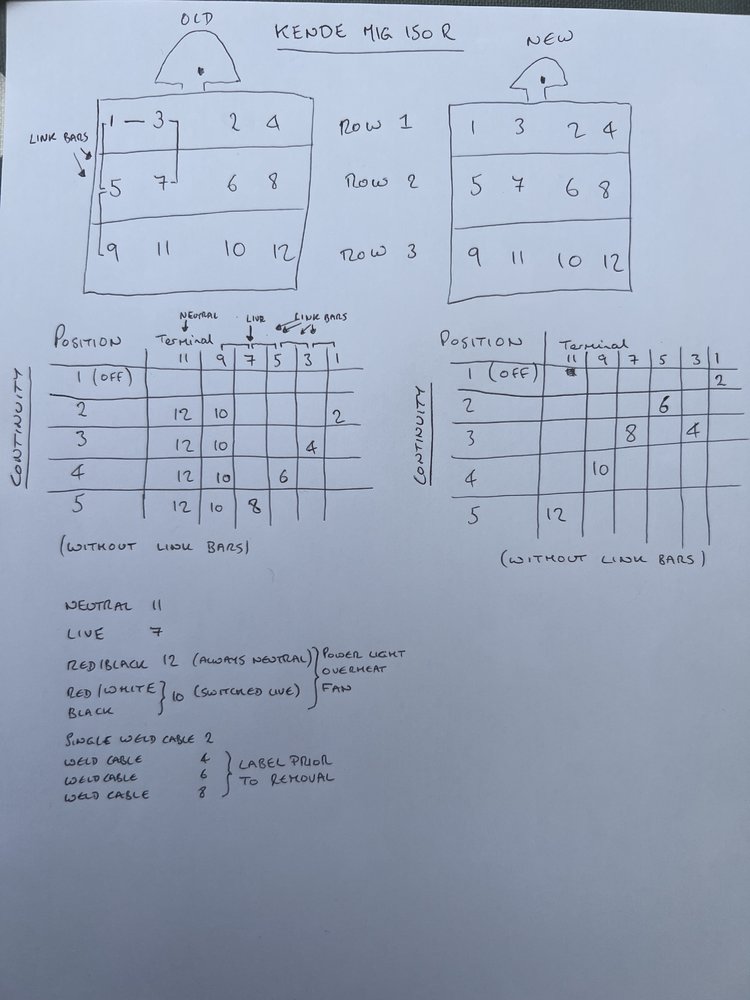 OLD
KENDE MIG 150 R
NEW
LINK BARS
1 — 3 2 4
ROW 1
1 3 2 4
5 7 6 8
ROW 2
5 7 6 8
9 11 10 12
ROW 3
9 11 10 12
NEUTRAL LIVE LINK BARS
POSITION Terminal
11 9 7 5 3 1
CONTINUITY
1 (OFF)
2 12 10 2
3 12 10 4
4 12 10 6
5 12 10 8
(WITHOUT LINK BARS)
POSITION Terminal
11 9 7 5 3 1
CONTINUITY
1 (OFF) 2
2 6
3 8 4
4 10
5 12
(WITHOUT LINK BARS)
NEUTRAL 11
LIVE 7
RED/BLACK 12 (ALWAYS NEUTRAL) POWER LIGHT
OVERHEAT
RED/WHITE 10 (SWITCHED LIVE) FAN
BLACK
SINGLE WELD CABLE 2
WELD CABLE 4 LABEL PRIOR
WELD CABLE 6 TO REMOVAL
WELD CABLE 8